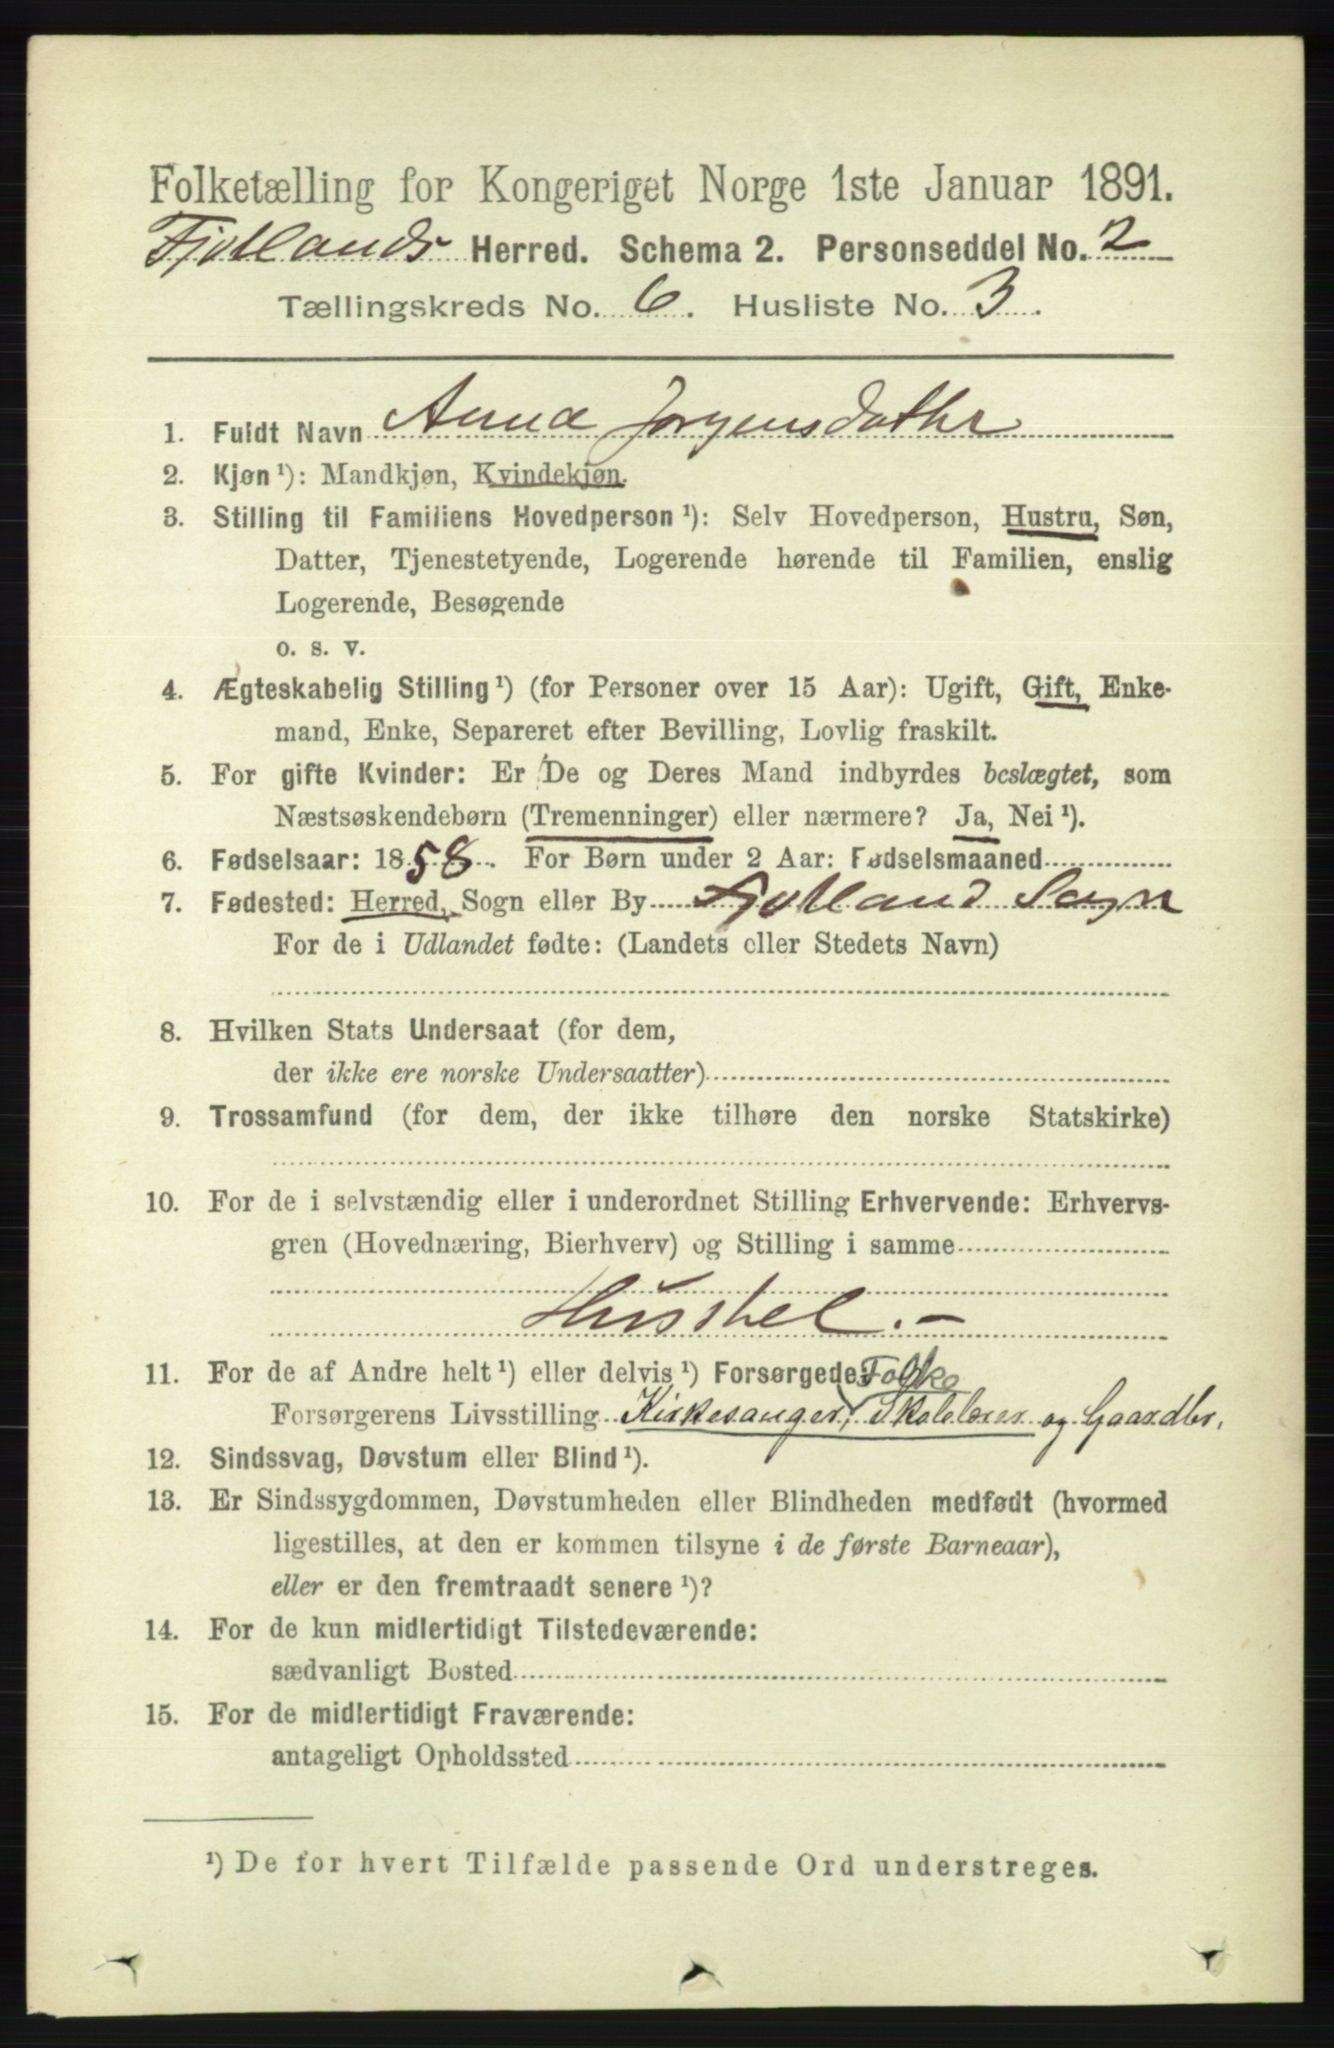 Folketælling for Kongeriget Norge 1ste Januar 1891.
Fjotlands Herred. Schema 2. Personseddel No. 2
Tællingskreds No. 6. Husliste No. 3.
1. Fuldt Navn Anna Jørgensdatter
2. Kjøn ¹): Mandkjøn, Kvindekjøn.
3. Stilling til Familiens Hovedperson ¹): Selv Hovedperson, Hustru, Søn,
Datter, Tjenestetyende, Logerende hørende til Familien, enslig
Logerende, Besøgende
o. s. v.
4. Ægteskabelig Stilling ¹) (for Personer over 15 Aar): Ugift, Gift, Enke-
mand, Enke, Separeret efter Bevilling, Lovlig fraskilt.
5. For gifte Kvinder: Er De og Deres Mand indbyrdes beslægtet, som
Næstsøskendebørn (Tremenninger) eller nærmere? Ja, Nei ¹).
6. Fødselsaar: 1858. For Børn under 2 Aar: Fødselsmaaned
7. Fødested: Herred, Sogn eller By Fjotland Sogn
For de i Udlandet fødte: (Landets eller Stedets Navn)
8. Hvilken Stats Undersaat (for dem,
der ikke ere norske Undersaatter)
9. Trossamfund (for dem, der ikke tilhøre den norske Statskirke)
10. For de i selvstændig eller i underordnet Stilling Erhvervende: Erhvervs-
gren (Hovednæring, Bierhverv) og Stilling i samme
Husstel. –
11. For de af Andre helt ¹) eller delvis ¹) Forsørgede: Folke
Forsørgerens Livsstilling Kirkesanger, Skolelærer og Gaardbr.
12. Sindssvag, Døvstum eller Blind ¹).
13. Er Sindssygdommen, Døvstumheden eller Blindheden medfødt (hvormed
ligestilles, at den er kommen tilsyne i de første Barneaar),
eller er den fremtraadt senere ¹)?
14. For de kun midlertidigt Tilstedeværende:
sædvanligt Bosted
15. For de midlertidigt Fraværende:
antageligt Opholdssted
¹) De for hvert Tilfælde passende Ord understreges.